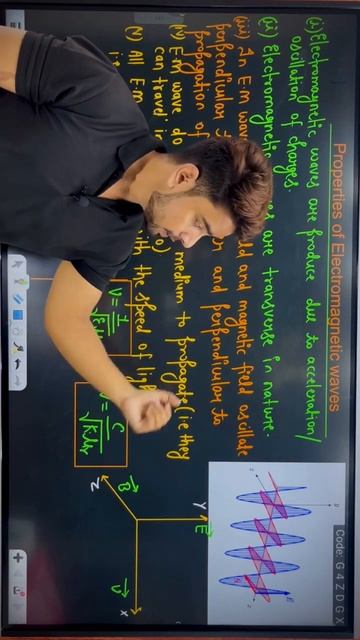 Properties of Electromagnetic waves
Code: G 4 Z D G X
(i) Electromagnetic waves are produce due to acceleration/
oscillation of charges.
(ii) Electromagnetic are transverse in nature.
(iii) In E-M wav and magnetic field oscillate
perpendicular and perpendicular to
propagation of
(iv) E-M wave do medium to propagate (i.e they
can travel
(v) All E-M with the speed of
i.e
V = 1
C
Y
E
B
Z
V
X